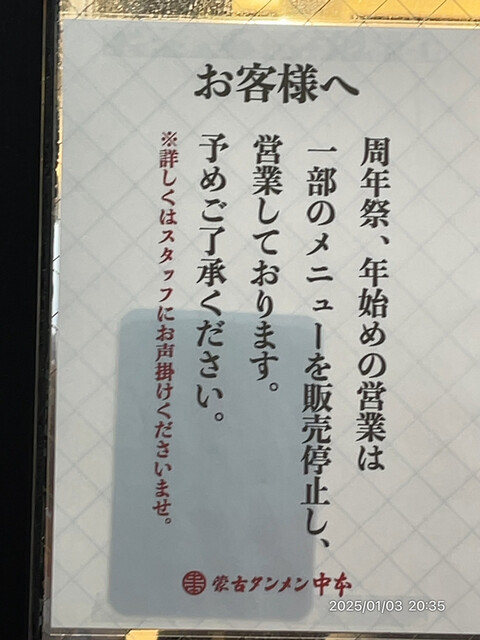 お客様へ
周年祭、年始めの営業は
一部のメニューを販売停止し、
営業しております。
予めご了承ください。
※詳しくはスタッフにお声掛けくださいませ。
蒙古タンメン中本
2025/01/03 20:35